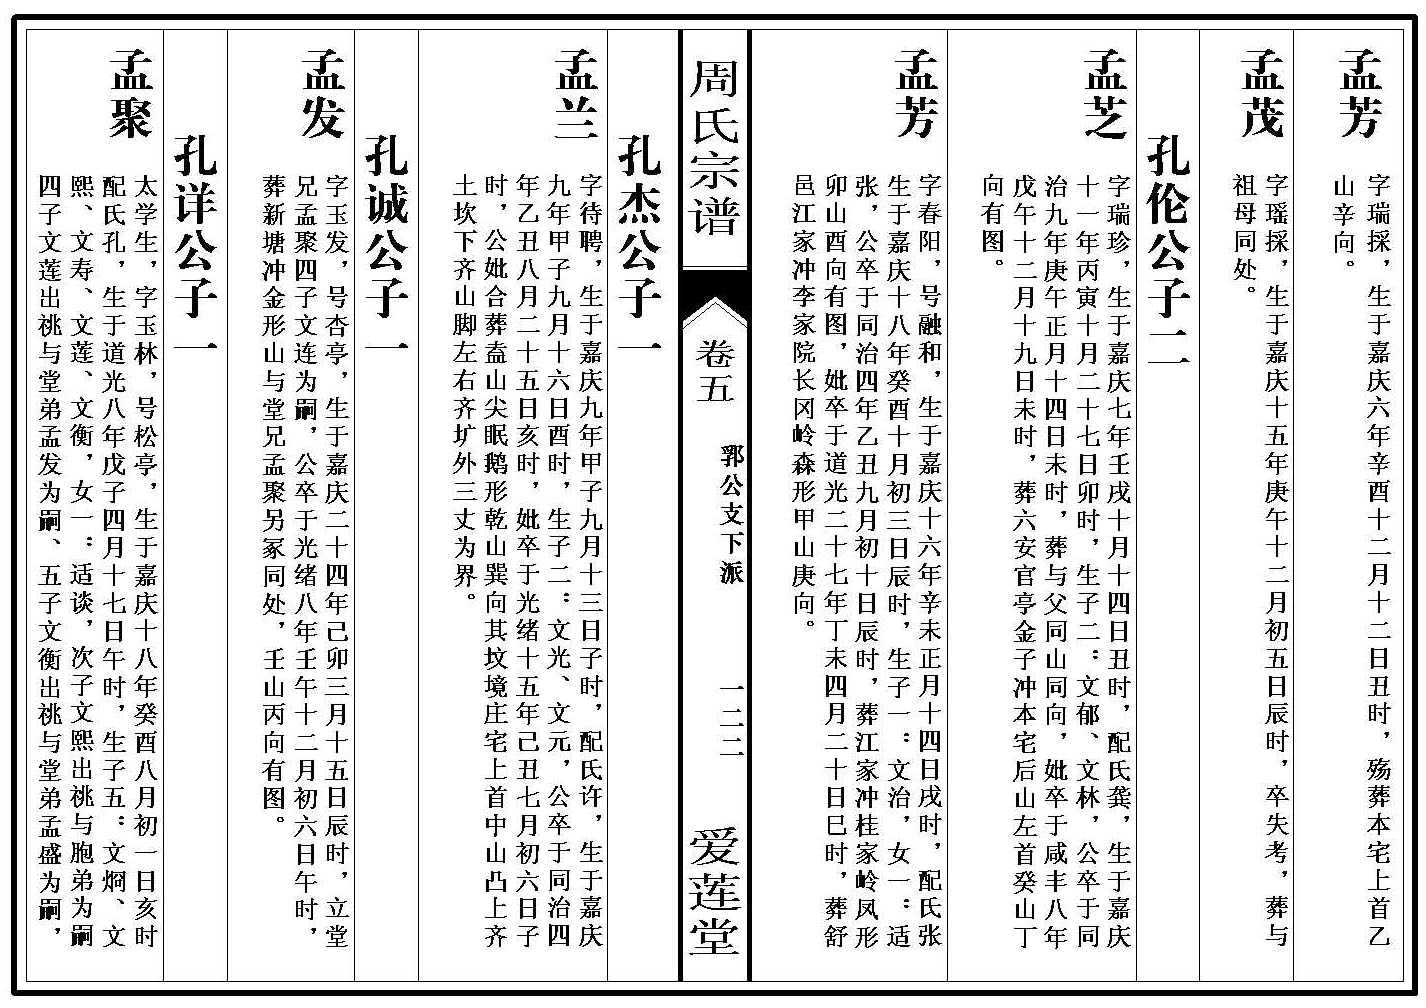 孟芳
字瑞採，生于嘉庆六年辛酉十二月十二日丑时，殇葬本宅上首乙
山辛向。
孟茂
字瑶採，生于嘉庆十五年庚午十二月初五日辰时，卒失考，葬与
祖母同处。
孔伦公子二
孟芝
字瑞珍，生于嘉庆七年壬戌十月十四日丑时，配氏龚，生于嘉庆
十一年丙寅十月二十七日卯时，生子二：文郁、文林，公卒于同
治九年庚午正月十四日未时，葬与父同山同向，妣卒于咸丰八年
戊午十二月十九日未时，葬六安官亭金子冲本宅后山左首癸山丁
向有图。
孟芳
字春阳，号融和，生于嘉庆十六年辛未正月十四日戌时，配氏张
生于嘉庆十八年癸酉十月初三日辰时，生子一：文治，女一：适
张，公卒于同治四年乙丑九月初十日辰时，葬江家冲桂家岭凤形
卯山酉向有图，妣卒于道光二十七年丁未四月二十日巳时，葬舒
邑江家冲李家院长冈岭森形甲山庚向。
周氏宗谱
卷五
郛公支下派
一二二
爱莲堂
孔杰公子一
孟兰
字待聘，生于嘉庆九年甲子九月十三日子时，配氏许，生于嘉庆
九年甲子九月十六日酉时，生子二：文光、文元，公卒于同治四
年乙丑八月二十五日亥时，妣卒于光绪十五年己丑七月初六日子
时，公妣合葬盍山尖眠鹅形乾山巽向其坟境庄宅上首中山凸上齐
土坎下齐山脚左右齐圹外三丈为界。
孔诚公子一
孟发
字玉发，号杏亭，生于嘉庆二十四年己卯三月十五日辰时，立堂
兄孟聚四子文连为嗣，公卒于光绪八年壬午十二月初六日午时，
葬新塘冲金形山与堂兄孟聚另冢同处，壬山丙向有图。
孔详公子一
孟聚
太学生，字玉林，号松亭，生于嘉庆十八年癸酉八月初一日亥时
配氏孔，生于道光八年戊子四月十七日午时，生子五：文炯、文
熙、文寿、文莲、文衡，女一：适谈，次子文熙出祧与胞弟为嗣
四子文莲出祧与堂弟孟发为嗣、五子文衡出祧与堂弟孟盛为嗣，